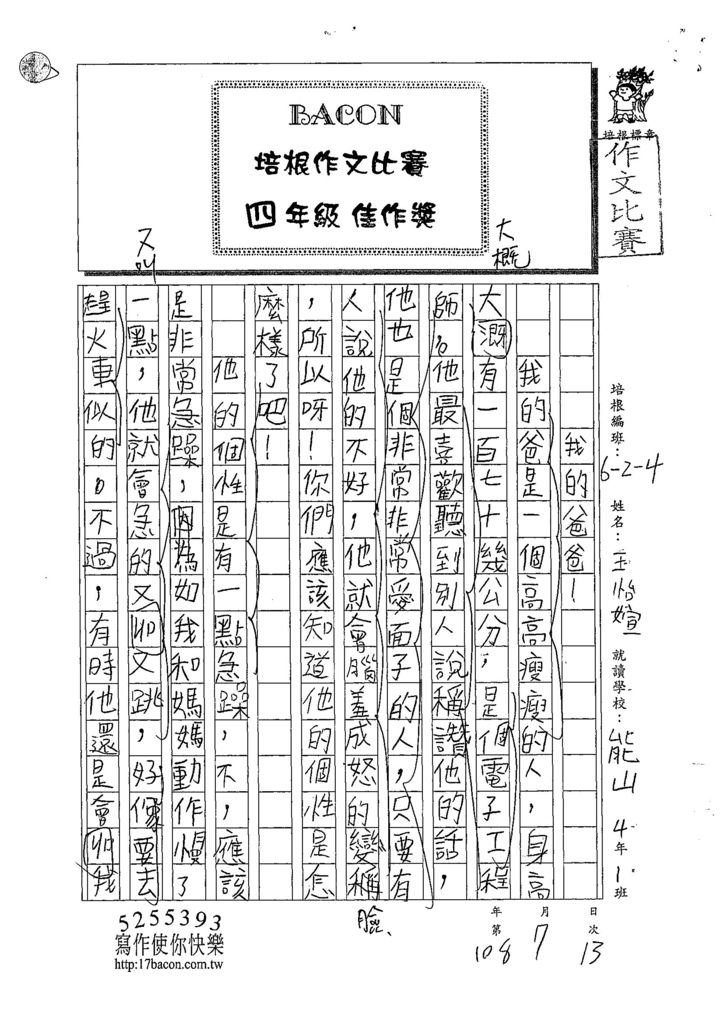 BACON
培根作文比賽
四年級 佳作獎
培根標章
作文比賽
培根編班：6-2-4 姓名：王怡媗 就讀學校：能山 4年1班
我的爸爸！
我的爸是一個高高瘦瘦的人，身高
大溉有一百七十幾公分，是個電子工程
師。他最喜歡聽到別人說稱讚他的話，
他也是個非常非常愛面子的人，只要有
人說他的不好，他就會腦羞成怒的變稱
，所以呀！你們應該知道他的個性是怎
麼樣了吧！
他的個性是有一點急躁，不，應該
是非常急躁，因為如我和媽媽動作慢了
一點，他就會急的又卯又跳，好像要去
趕火車似的。不過，有時他還是會卯我
大概
又叫
臉
年第108 月7 日次13
5255393
寫作使你快樂
http:17bacon.com.tw